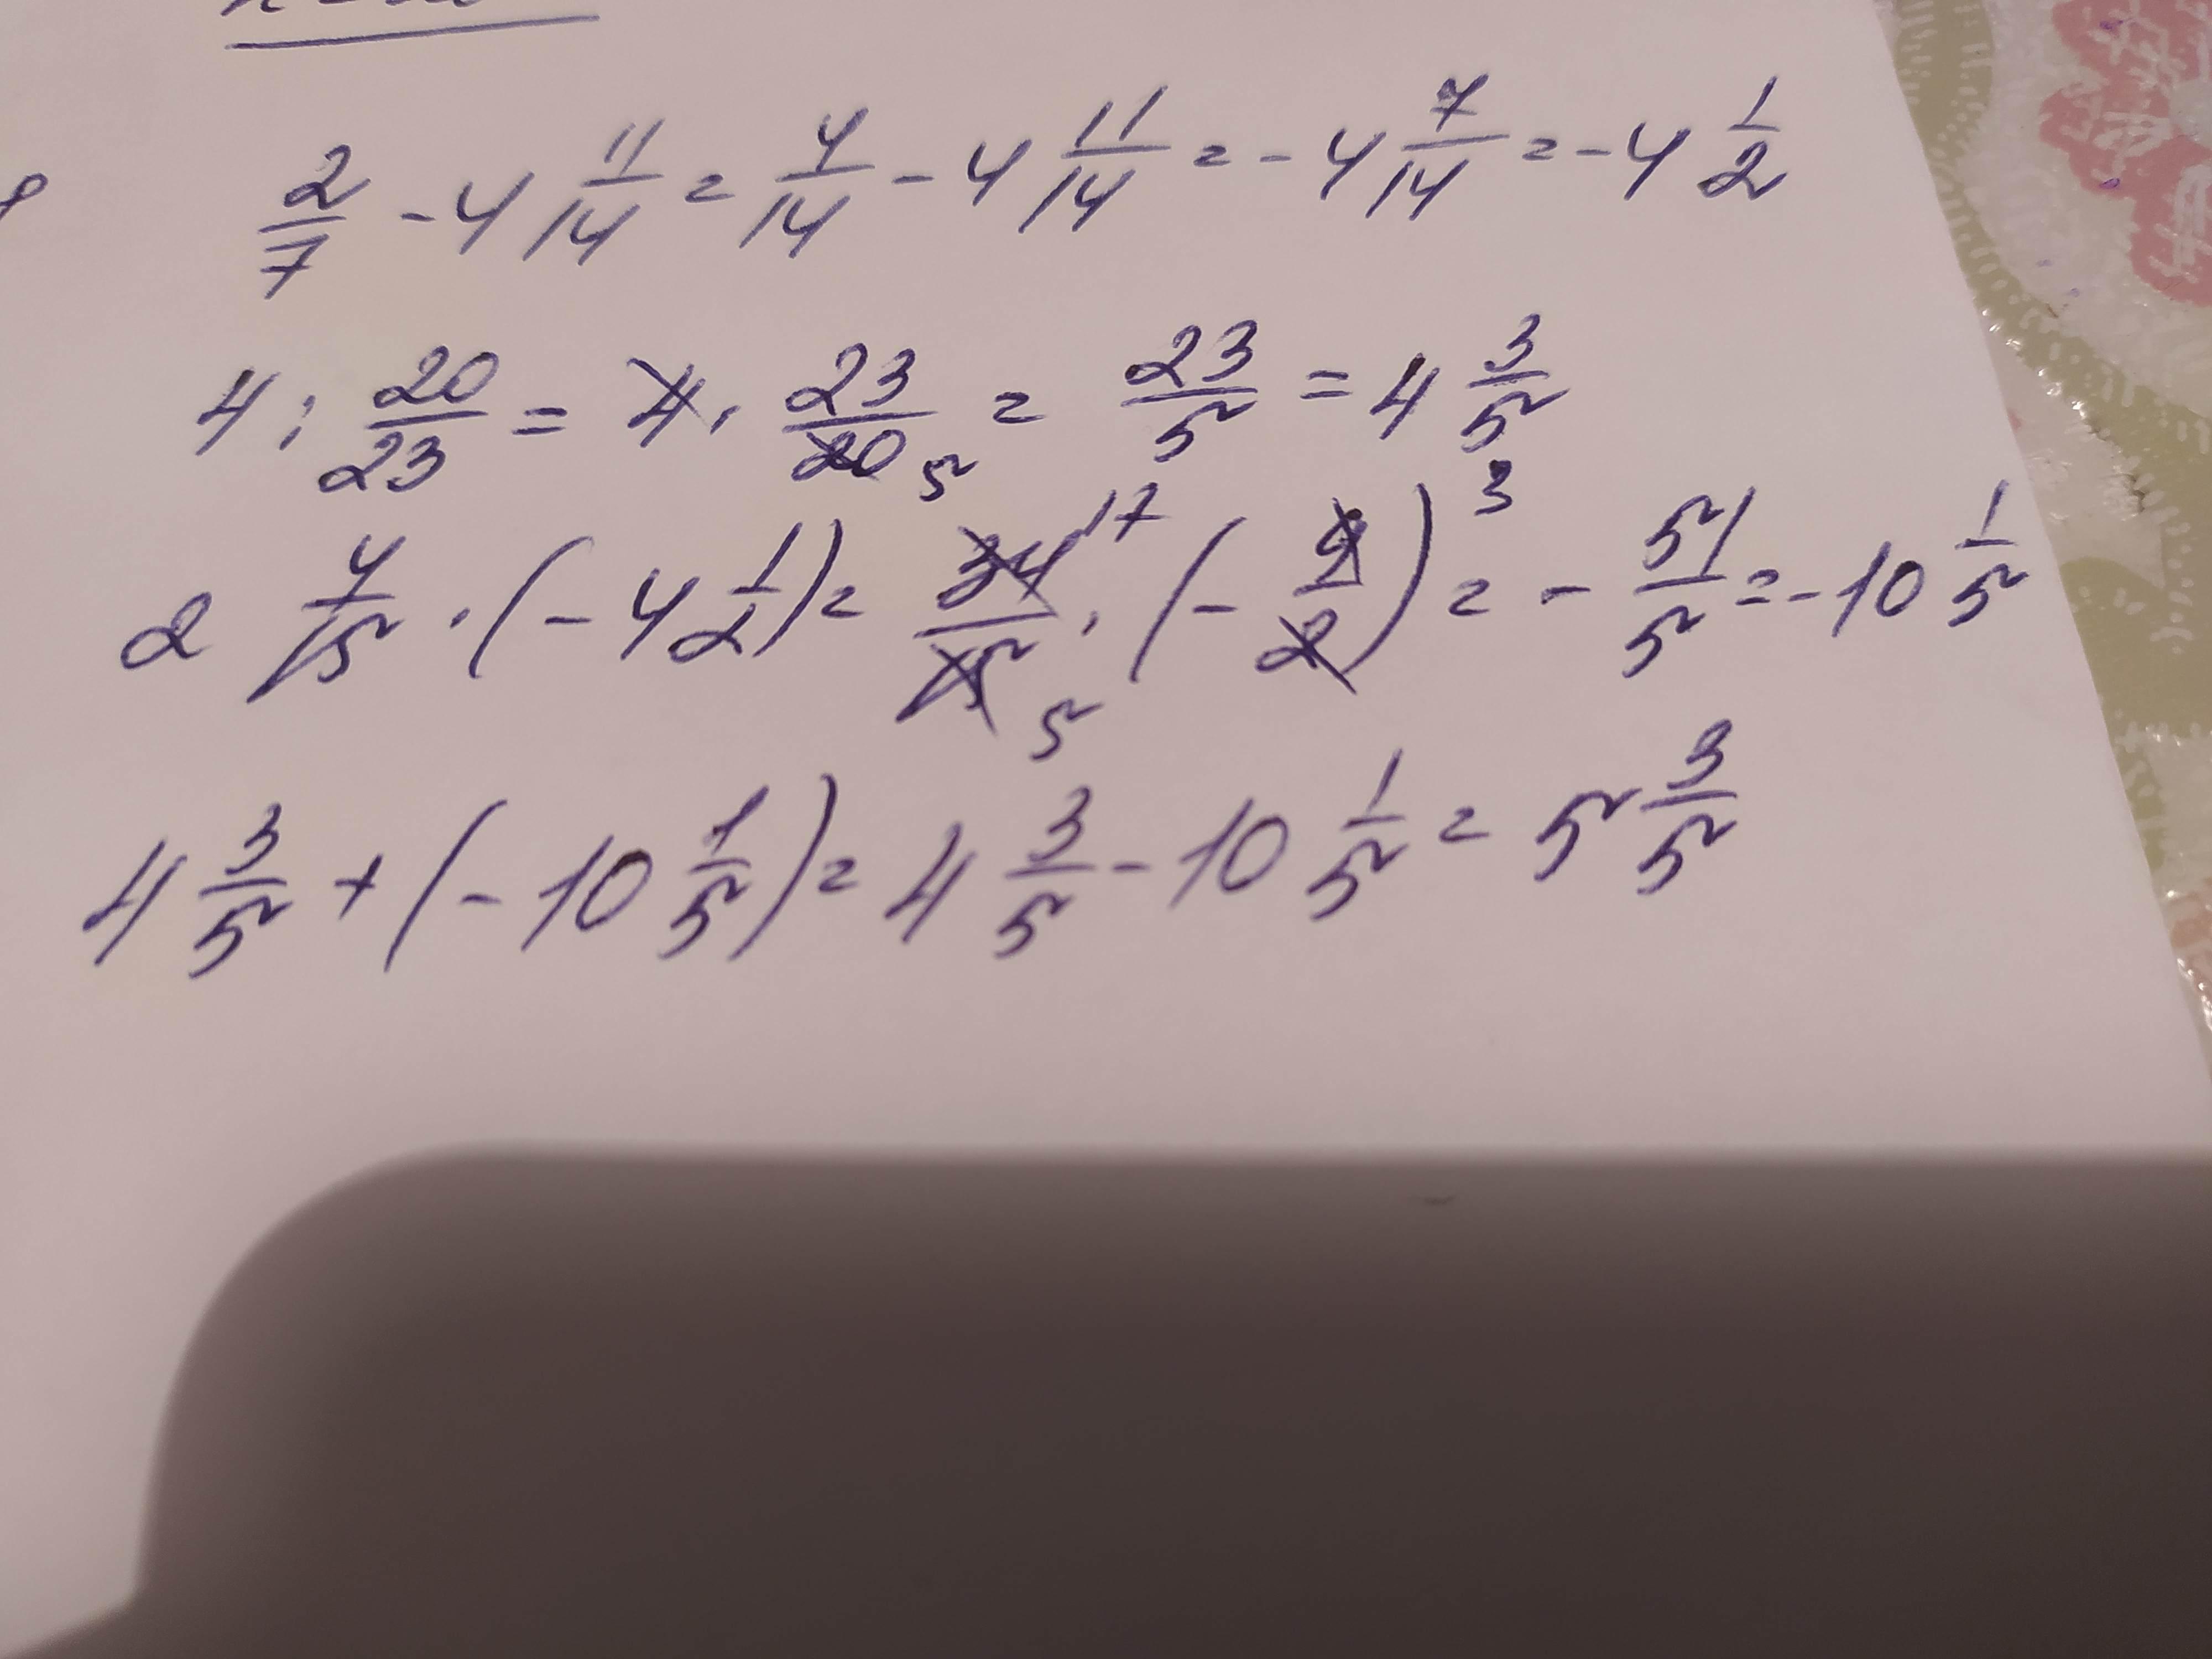 2/7 - 4 11/14 = 4/14 - 4 11/14 = - 4 7/14 = - 4 1/2
4 : 20/23 = 4 · 23/20 5 = 23/5 = 4 3/5
2 4/15 · (- 4 1/2) = 34/15 17 5 · (- 9/2) 3 = - 51/5 = - 10 1/5
4 3/5 + (- 10 1/5) = 4 3/5 - 10 1/5 = 5 3/5